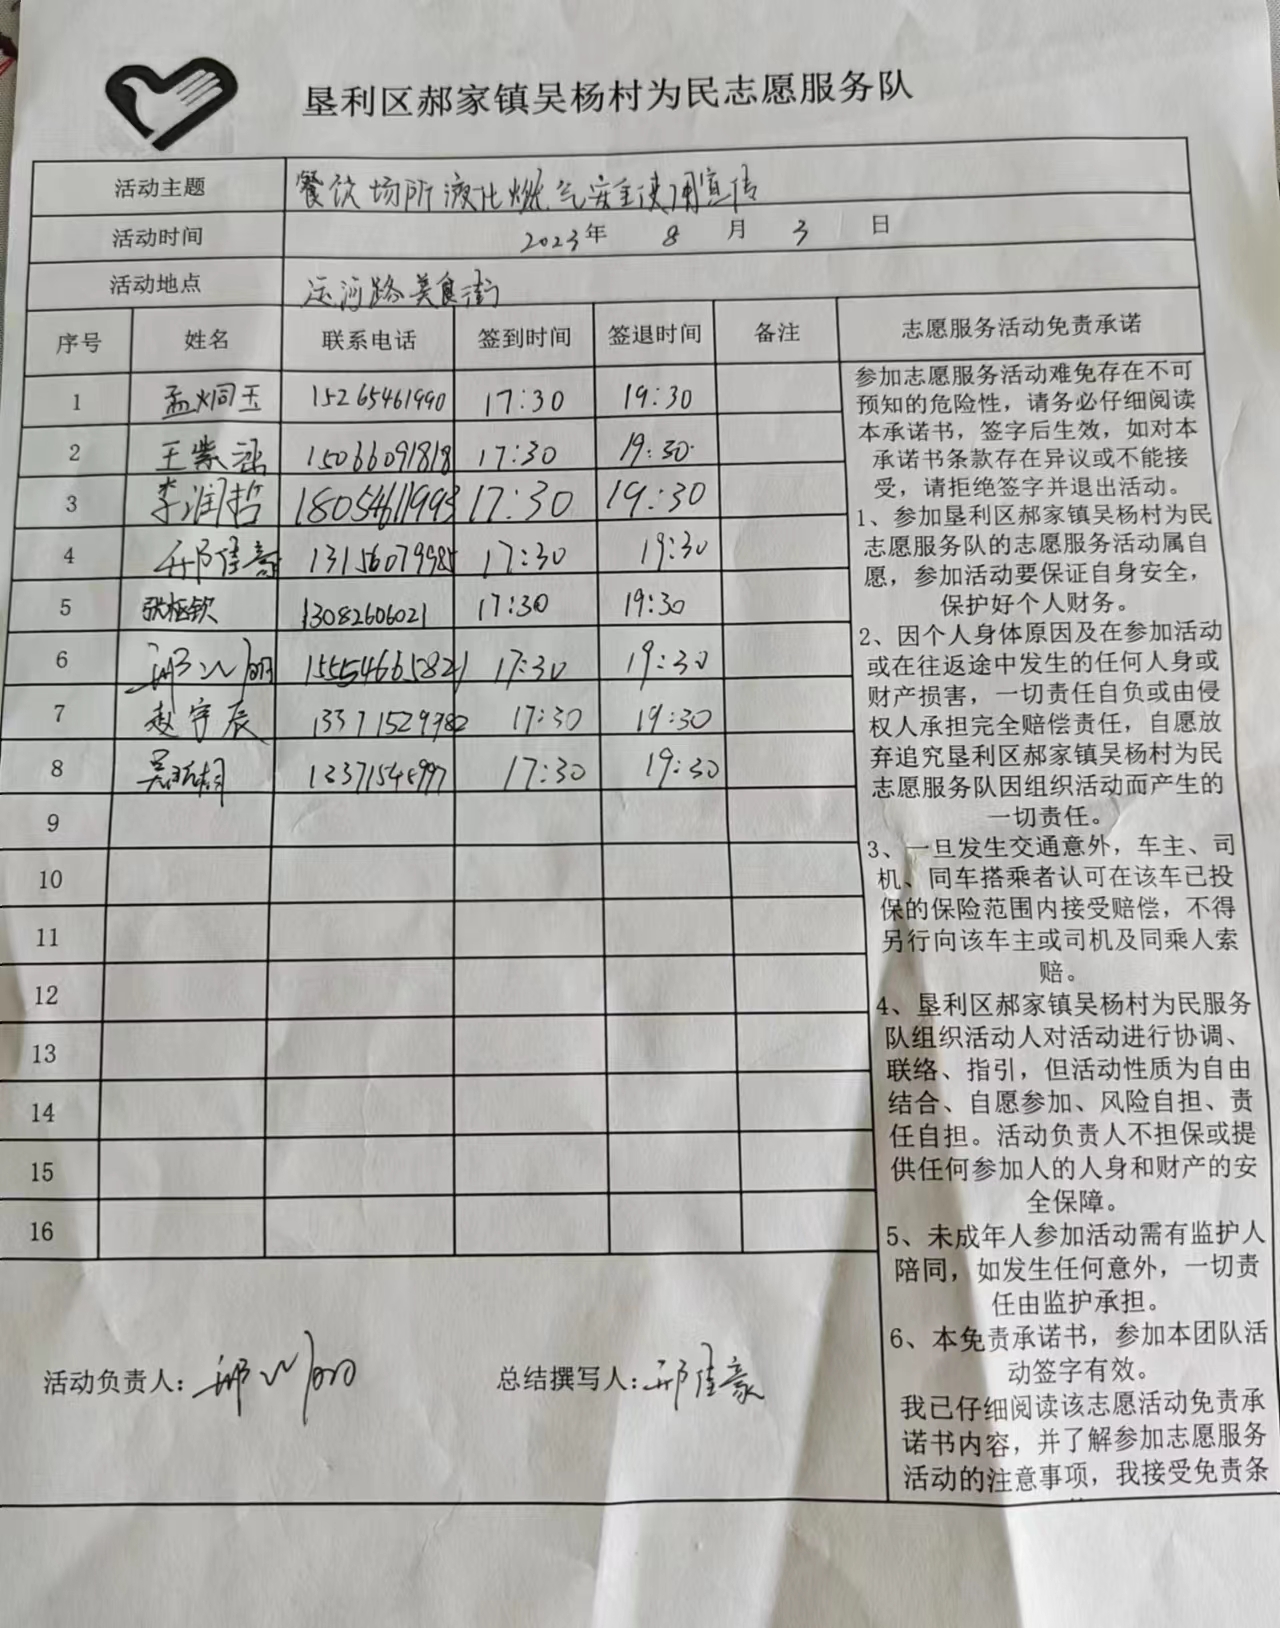 垦利区郝家镇吴杨村为民志愿服务队
活动主题 餐饮场所液化燃气安全使用宣传
活动时间 2023年 8 月 3 日
活动地点 运河路美食街
序号 姓名 联系电话 签到时间 签退时间 备注 志愿服务活动免责承诺
1 孟炯玉 15265461990 17:30 19:30
2 王紫涵 15066091818 17:30 19:30
3 李润哲 18054611993 17:30 19:30
4 邢佳豪 13156079985 17:30 19:30
5 张栢钦 13082606021 17:30 19:30
6 15554665821 17:30 19:30
7 赵宇辰 13371529782 17:30 19:30
8 13371545997 17:30 19:30
9
10
11
12
13
14
15
16
参加志愿服务活动难免存在不可
预知的危险性，请务必仔细阅读
本承诺书，签字后生效，如对本
承诺书条款存在异议或不能接
受，请拒绝签字并退出活动。
1、参加垦利区郝家镇吴杨村为民
志愿服务队的志愿服务活动属自
愿，参加活动要保证自身安全，
保护好个人财务。
2、因个人身体原因及在参加活动
或在往返途中发生的任何人身或
财产损害，一切责任自负或由侵
权人承担完全赔偿责任，自愿放
弃追究垦利区郝家镇吴杨村为民
志愿服务队因组织活动而产生的
一切责任。
3、一旦发生交通意外，车主、司
机、同车搭乘者认可在该车已投
保的保险范围内接受赔偿，不得
另行向该车主或司机及同乘人索
赔。
4、垦利区郝家镇吴杨村为民服务
队组织活动人对活动进行协调、
联络、指引，但活动性质为自由
结合、自愿参加、风险自担、责
任自担。活动负责人不担保或提
供任何参加人的人身和财产的安
全保障。
5、未成年人参加活动需有监护人
陪同，如发生任何意外，一切责
任由监护承担。
6、本免责承诺书，参加本团队活
动签字有效。
我已仔细阅读该志愿活动免责承
诺书内容，并了解参加志愿服务
活动的注意事项，我接受免责条
活动负责人： 总结撰写人：邢佳豪